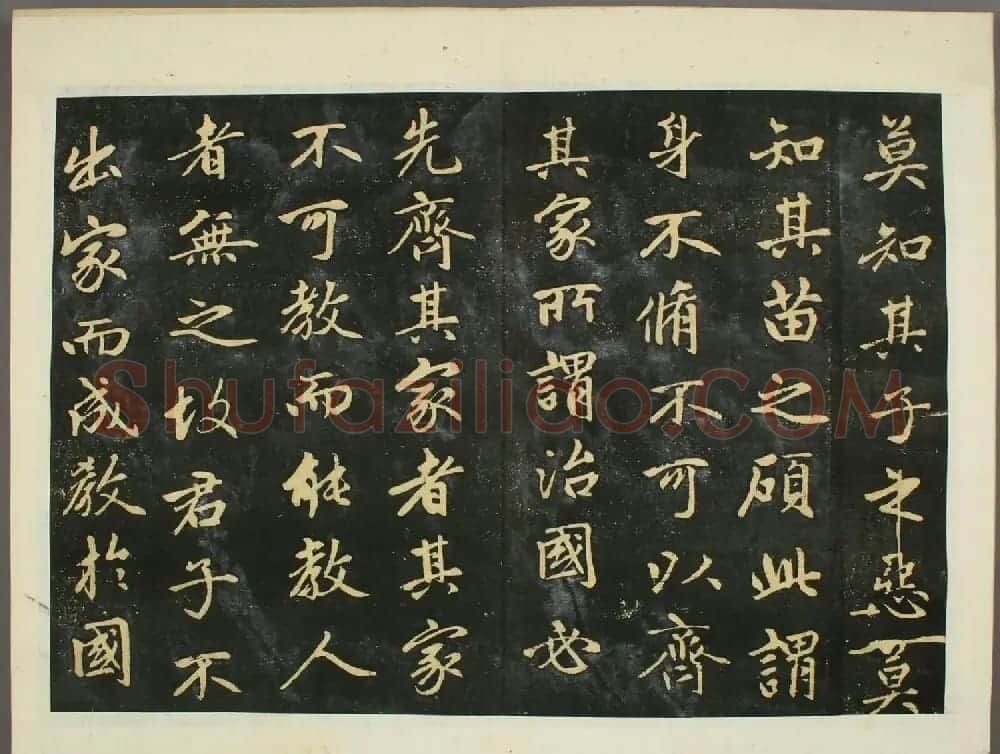 莫知其子之惡莫
知其苗之碩此謂
身不脩不可以齊
其家所謂治國必
先齊其家者其家
不可教而能教人
者無之故君子不
出家而成教於國
Shufaziliao.COM